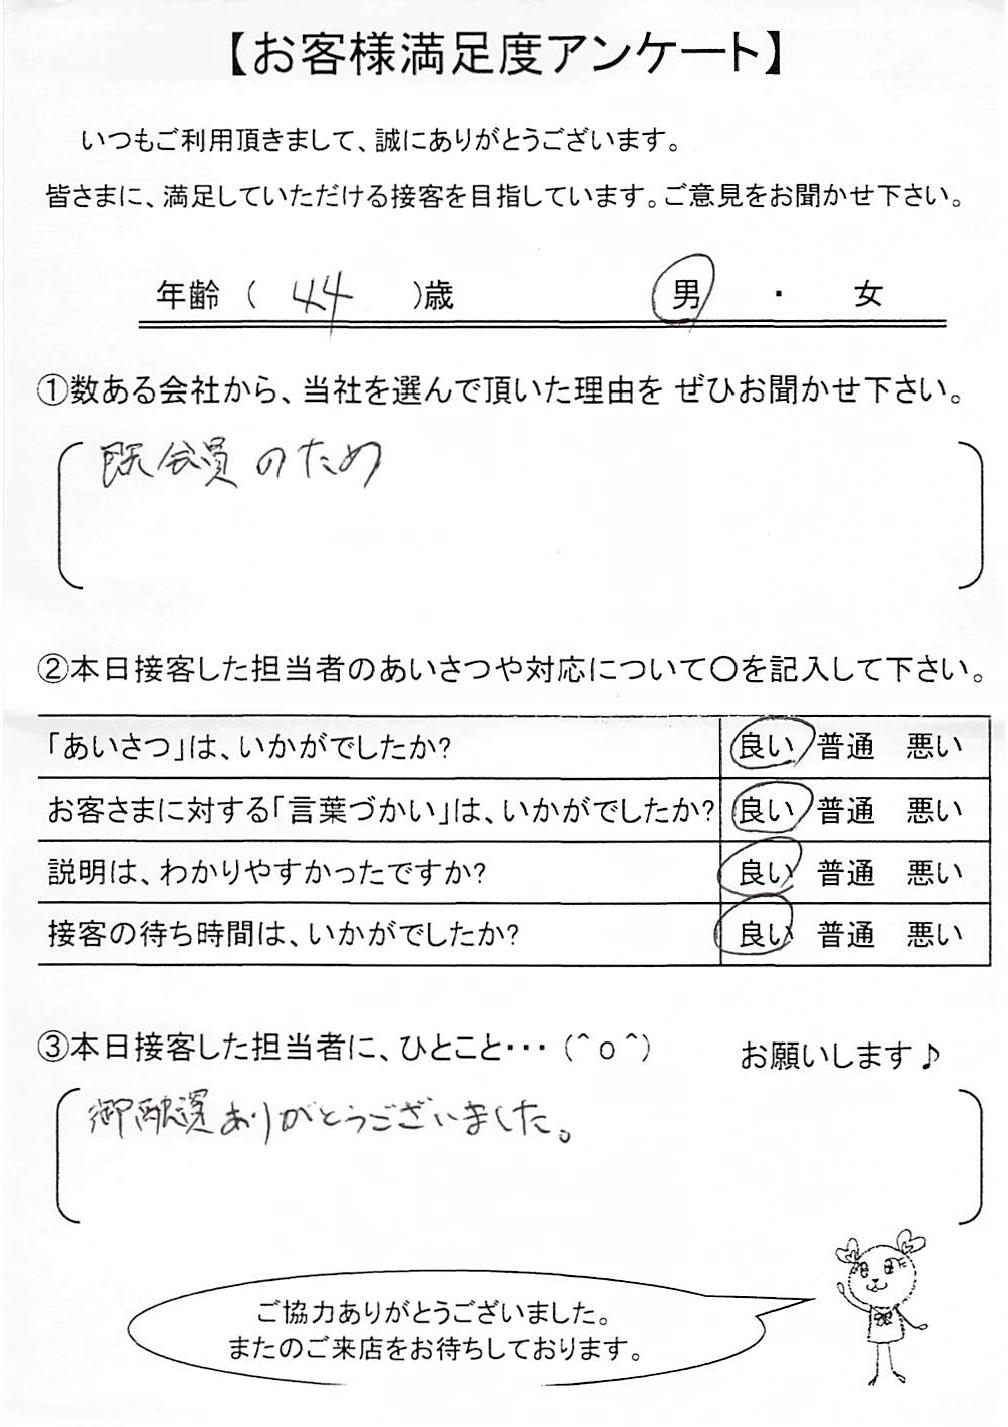 【お客様満足度アンケート】
いつもご利用頂きまして、誠にありがとうございます。
皆さまに、満足していただける接客を目指しています。ご意見をお聞かせ下さい。
年齢 ( 44 )歳 男 ・ 女
①数ある会社から、当社を選んで頂いた理由を ぜひお聞かせ下さい。
既会員のため
②本日接客した担当者のあいさつや対応について〇を記入して下さい。
「あいさつ」は、いかがでしたか? 良い 普通 悪い
お客さまに対する「言葉づかい」は、いかがでしたか? 良い 普通 悪い
説明は、わかりやすかったですか? 良い 普通 悪い
接客の待ち時間は、いかがでしたか? 良い 普通 悪い
③本日接客した担当者に、ひとこと・・・ (^o^) お願いします♪
御配慮ありがとうございました。
ご協力ありがとうございました。
またのご来店をお待ちしております。